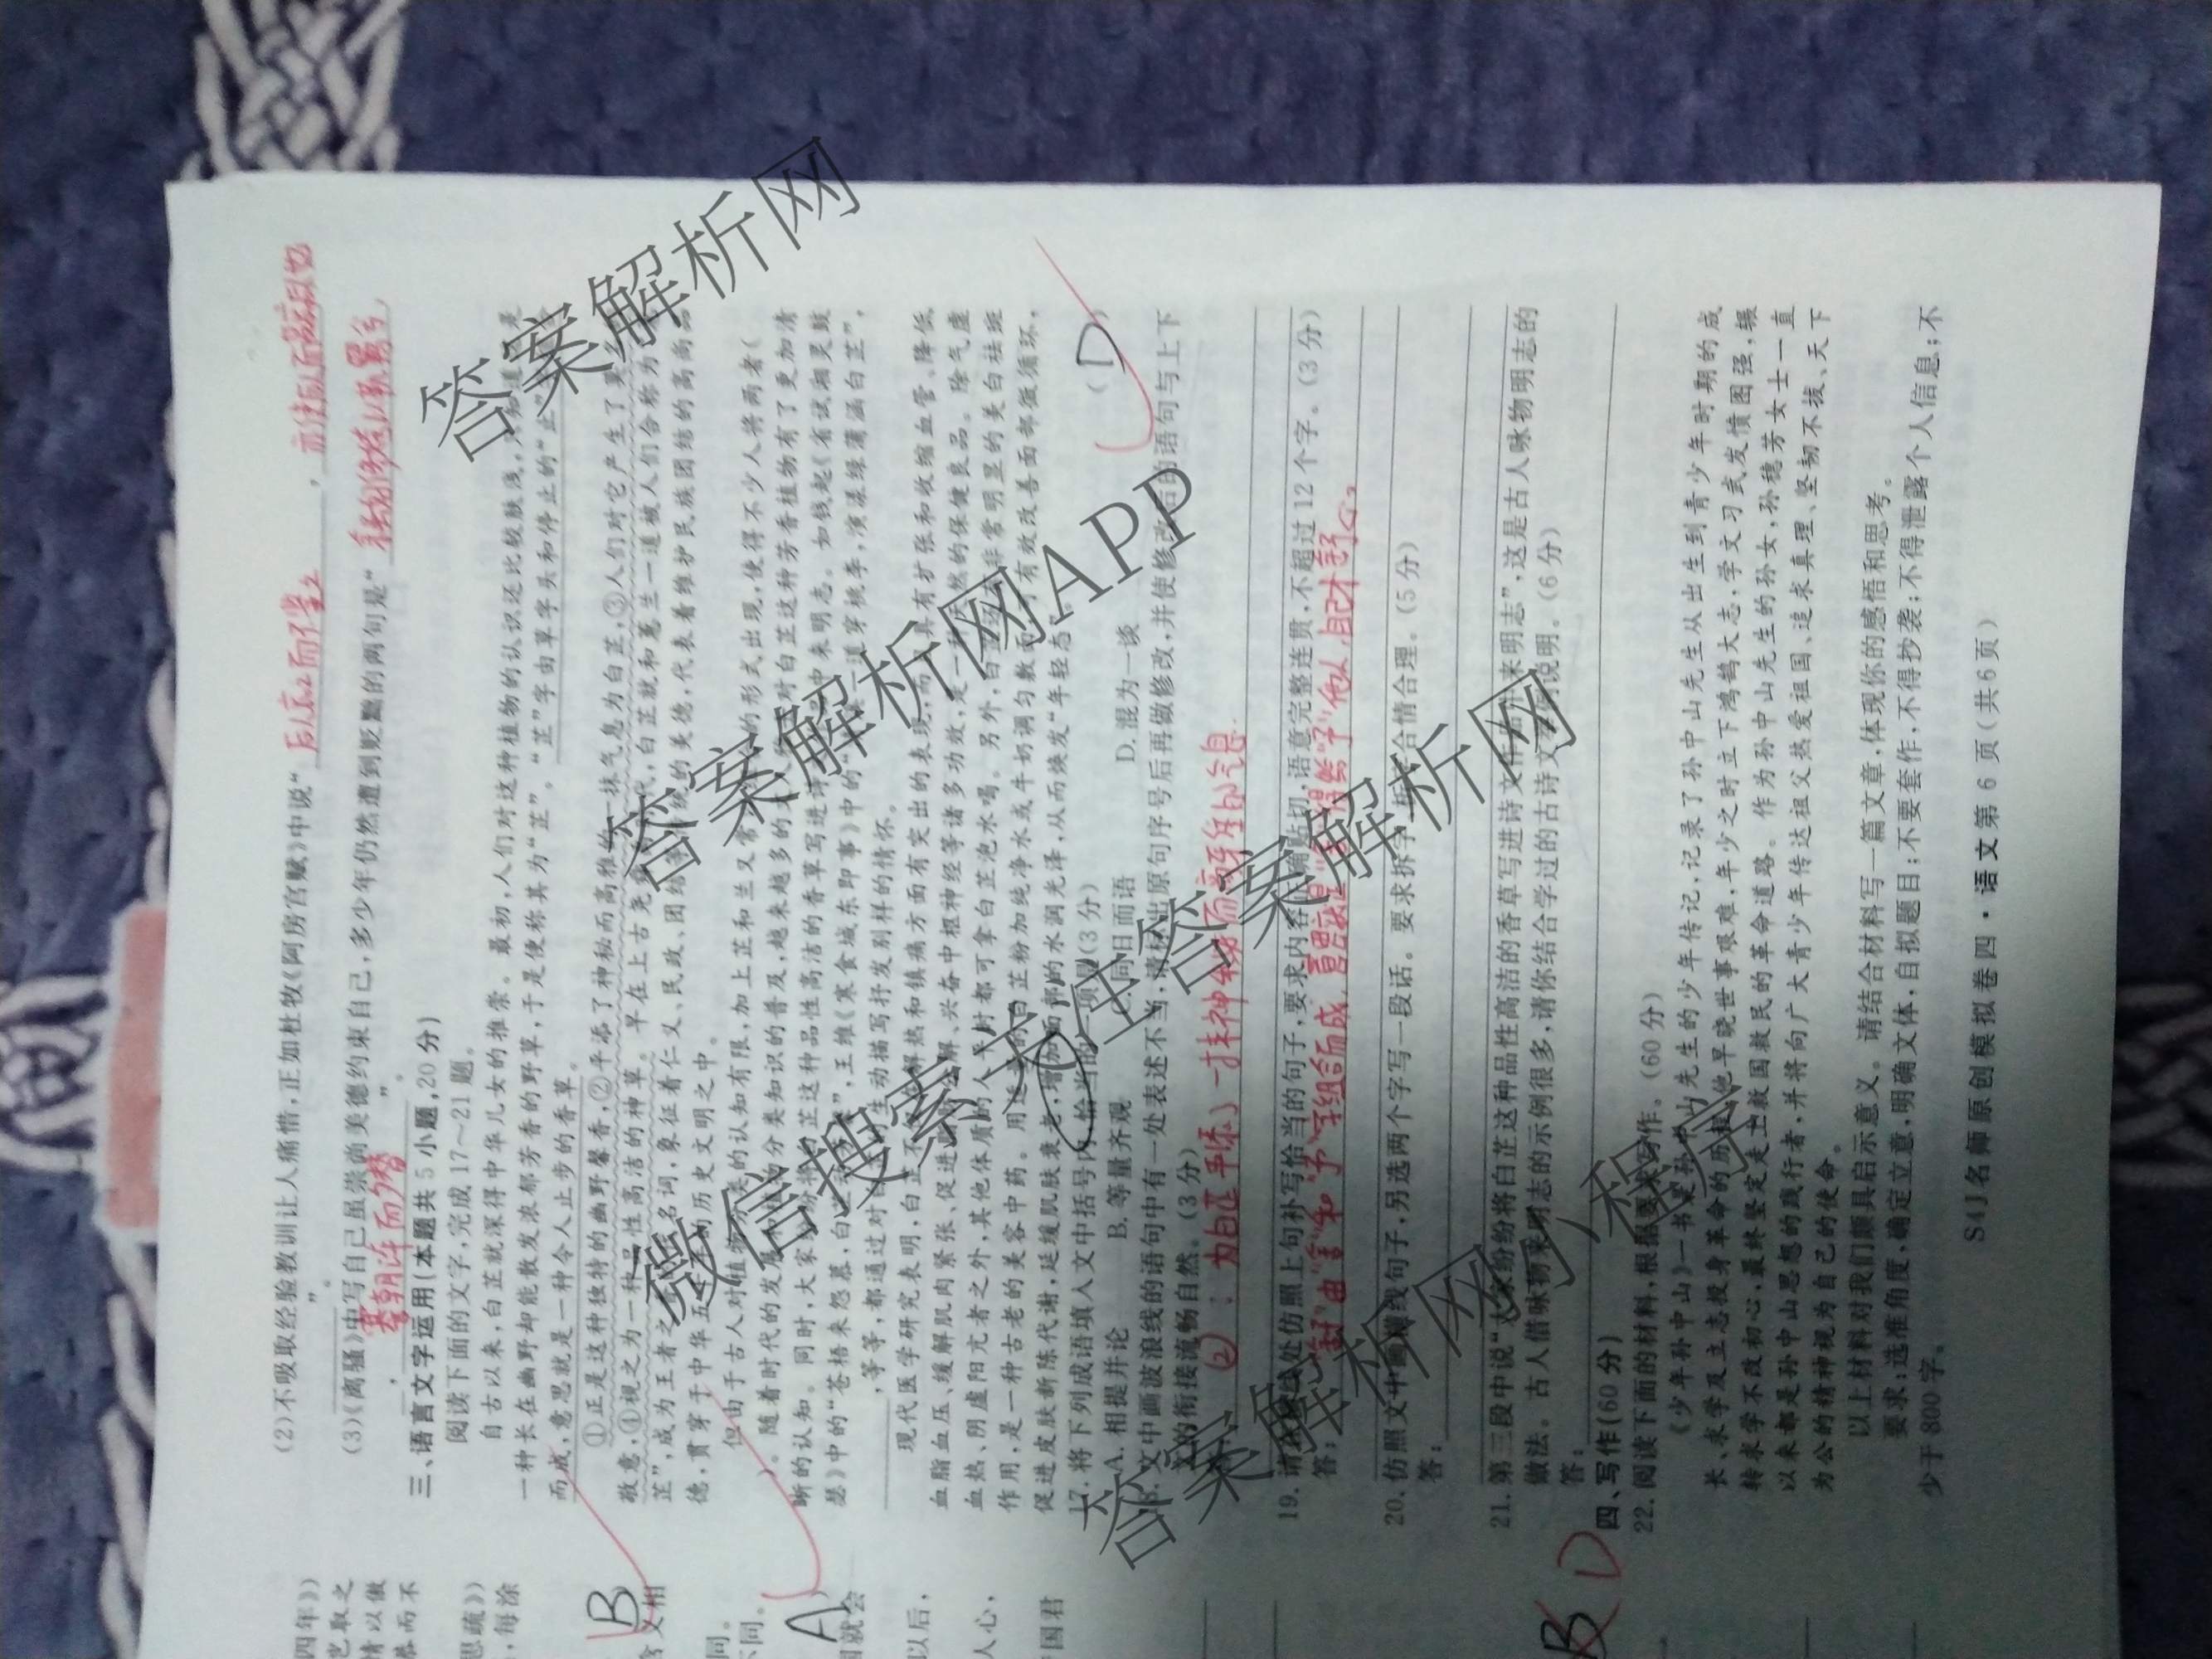 (2)不吸取经验教训让人痛惜,正如杜牧《阿房宫赋》中说“后人哀之而不鉴之,亦使后人而
”。
(3)《离骚》中写自己虽崇尚美德约束自己,多少年仍然遭到贬黜的两句是“
,謇朝谇而夕替”。
三、语言文字运用(本题共5小题,20分)
阅读下面的文字,完成17~21题。
自古以来,白芷就深得中华儿女的推崇。最初,人们对这种植物的认识还比较肤浅,
一种长在幽野却能散发浓郁芳香的野草,于是便称其为“芷”。“芷”字由草字头和停止的“止”
而成,意思就是一种令人止步的香草。
①正是这种独特的幽野馨香,②平添了神秘而高雅的一抹气息为白芷,③人们对它产生了
敬意,④视之为一种品性高洁的神草。早在上古尧 代,白芷就和蕙兰一道被人们合称为
芷”,成为王者之 名词,象征着仁义、民政、团结 的美德,代表着维护民族团结的高尚品
德,贯穿于中华五 的历史文明之中。
但由于古人对植物 类的认知有限,加上芷和兰又常 的形式出现,使得不少人将两者(
)。随着时代的发展 分类知识的普及,越来越多的 对白芷这种芳香植物有了更加清
晰的认知。同时,大家 纷将 芷这种品性高洁的香草写进诗 中来明志。如钱起《省试湘灵鼓
瑟》中的“苍梧来怨慕,白 ”,王维《寒食城东即事》中的“ 道穿桃李,演漾绿蒲涵白芷”,
,等等,都通过对 生动描写抒发别样的情怀。
现代医学研究表明,白芷不 解热和镇痛方面有突出的表现,而 具有扩张和收缩血管、降低
血脂血压、缓解肌肉紧张、促进 解、兴奋中枢神经等诸多功效,是一 天然的保健良品。除气虚
血热、阴虚阳亢者之外,其他体质的人 时都可拿白芷泡水喝。另外,白 非常明显的美白祛斑
作用,是一种古老的美容中药。用 的白芷粉加纯净水或牛奶调匀敷面,可有效改善面部微循环,
促进皮肤新陈代谢,延缓肌肤衰老,增加面部的水润光泽,从而焕发“年轻态”。
17.将下列成语填入文中括号内,恰当的一项是(3分) (D)
A.相提并论 B.等量齐观 C.同日而语 D.混为一谈
18.文中画波浪线的语句中有一处表述不当,请标出原句序号后再做修改,并使修改后的语句与上下
文的衔接流畅自然。(3分)
②:为白芷平添了一抹神秘而高雅的气息
19.请在横线处仿照上句补写恰当的句子,要求内容准确贴切,语意完整连贯,不超过12个字。(3分)
答:
20.仿照文中画横线句子,另选两个字写一段话。要求拆字 合情合理。(5分)
答:
21.第三段中说“大家纷纷将白芷这种品性高洁的香草写进诗文作品中来明志”,这是古人咏物明志的
做法。古人借咏物来明志的示例很多,请你结合学过的古诗文举例说明。(6分)
答:
四、写作(60分)
22.阅读下面的材料,根据要求写作。(60分)
《少年孙中山》一书是孙中山先生的少年传记,记录了孙中山先生从出生到青少年时期的成
长、求学及立志投身革命的历程。他早晓世事艰难,年少之时立下鸿鹄大志,学文习武,发愤图强,辗
转求学不改初心,最终坚定走上救国救民的革命道路。作为孙中山先生的孙女,孙穗芳女士一直
以来都是孙中山思想的践行者,并将向广大青少年传达祖父热爱祖国、追求真理、坚韧不拔、天下
为公的精神视为自己的使命。
以上材料对我们颇具启示意义。请结合材料写一篇文章,体现你的感悟和思考。
要求:选准角度,确定立意,明确文体,自拟题目;不要套作,不得抄袭;不得泄露个人信息;不
少于800字。
S4J名师原创模拟卷四·语文第6页(共6页)
四年》)
岂取之
情以傲
恭而不
思疏》)
,每涂
B
含义相
同。
不同。
A
国就会
以后,
人心,
国君
B D
答案解析网
答案解析网APP
微信搜索关注答案解析网
答案解析网小程序